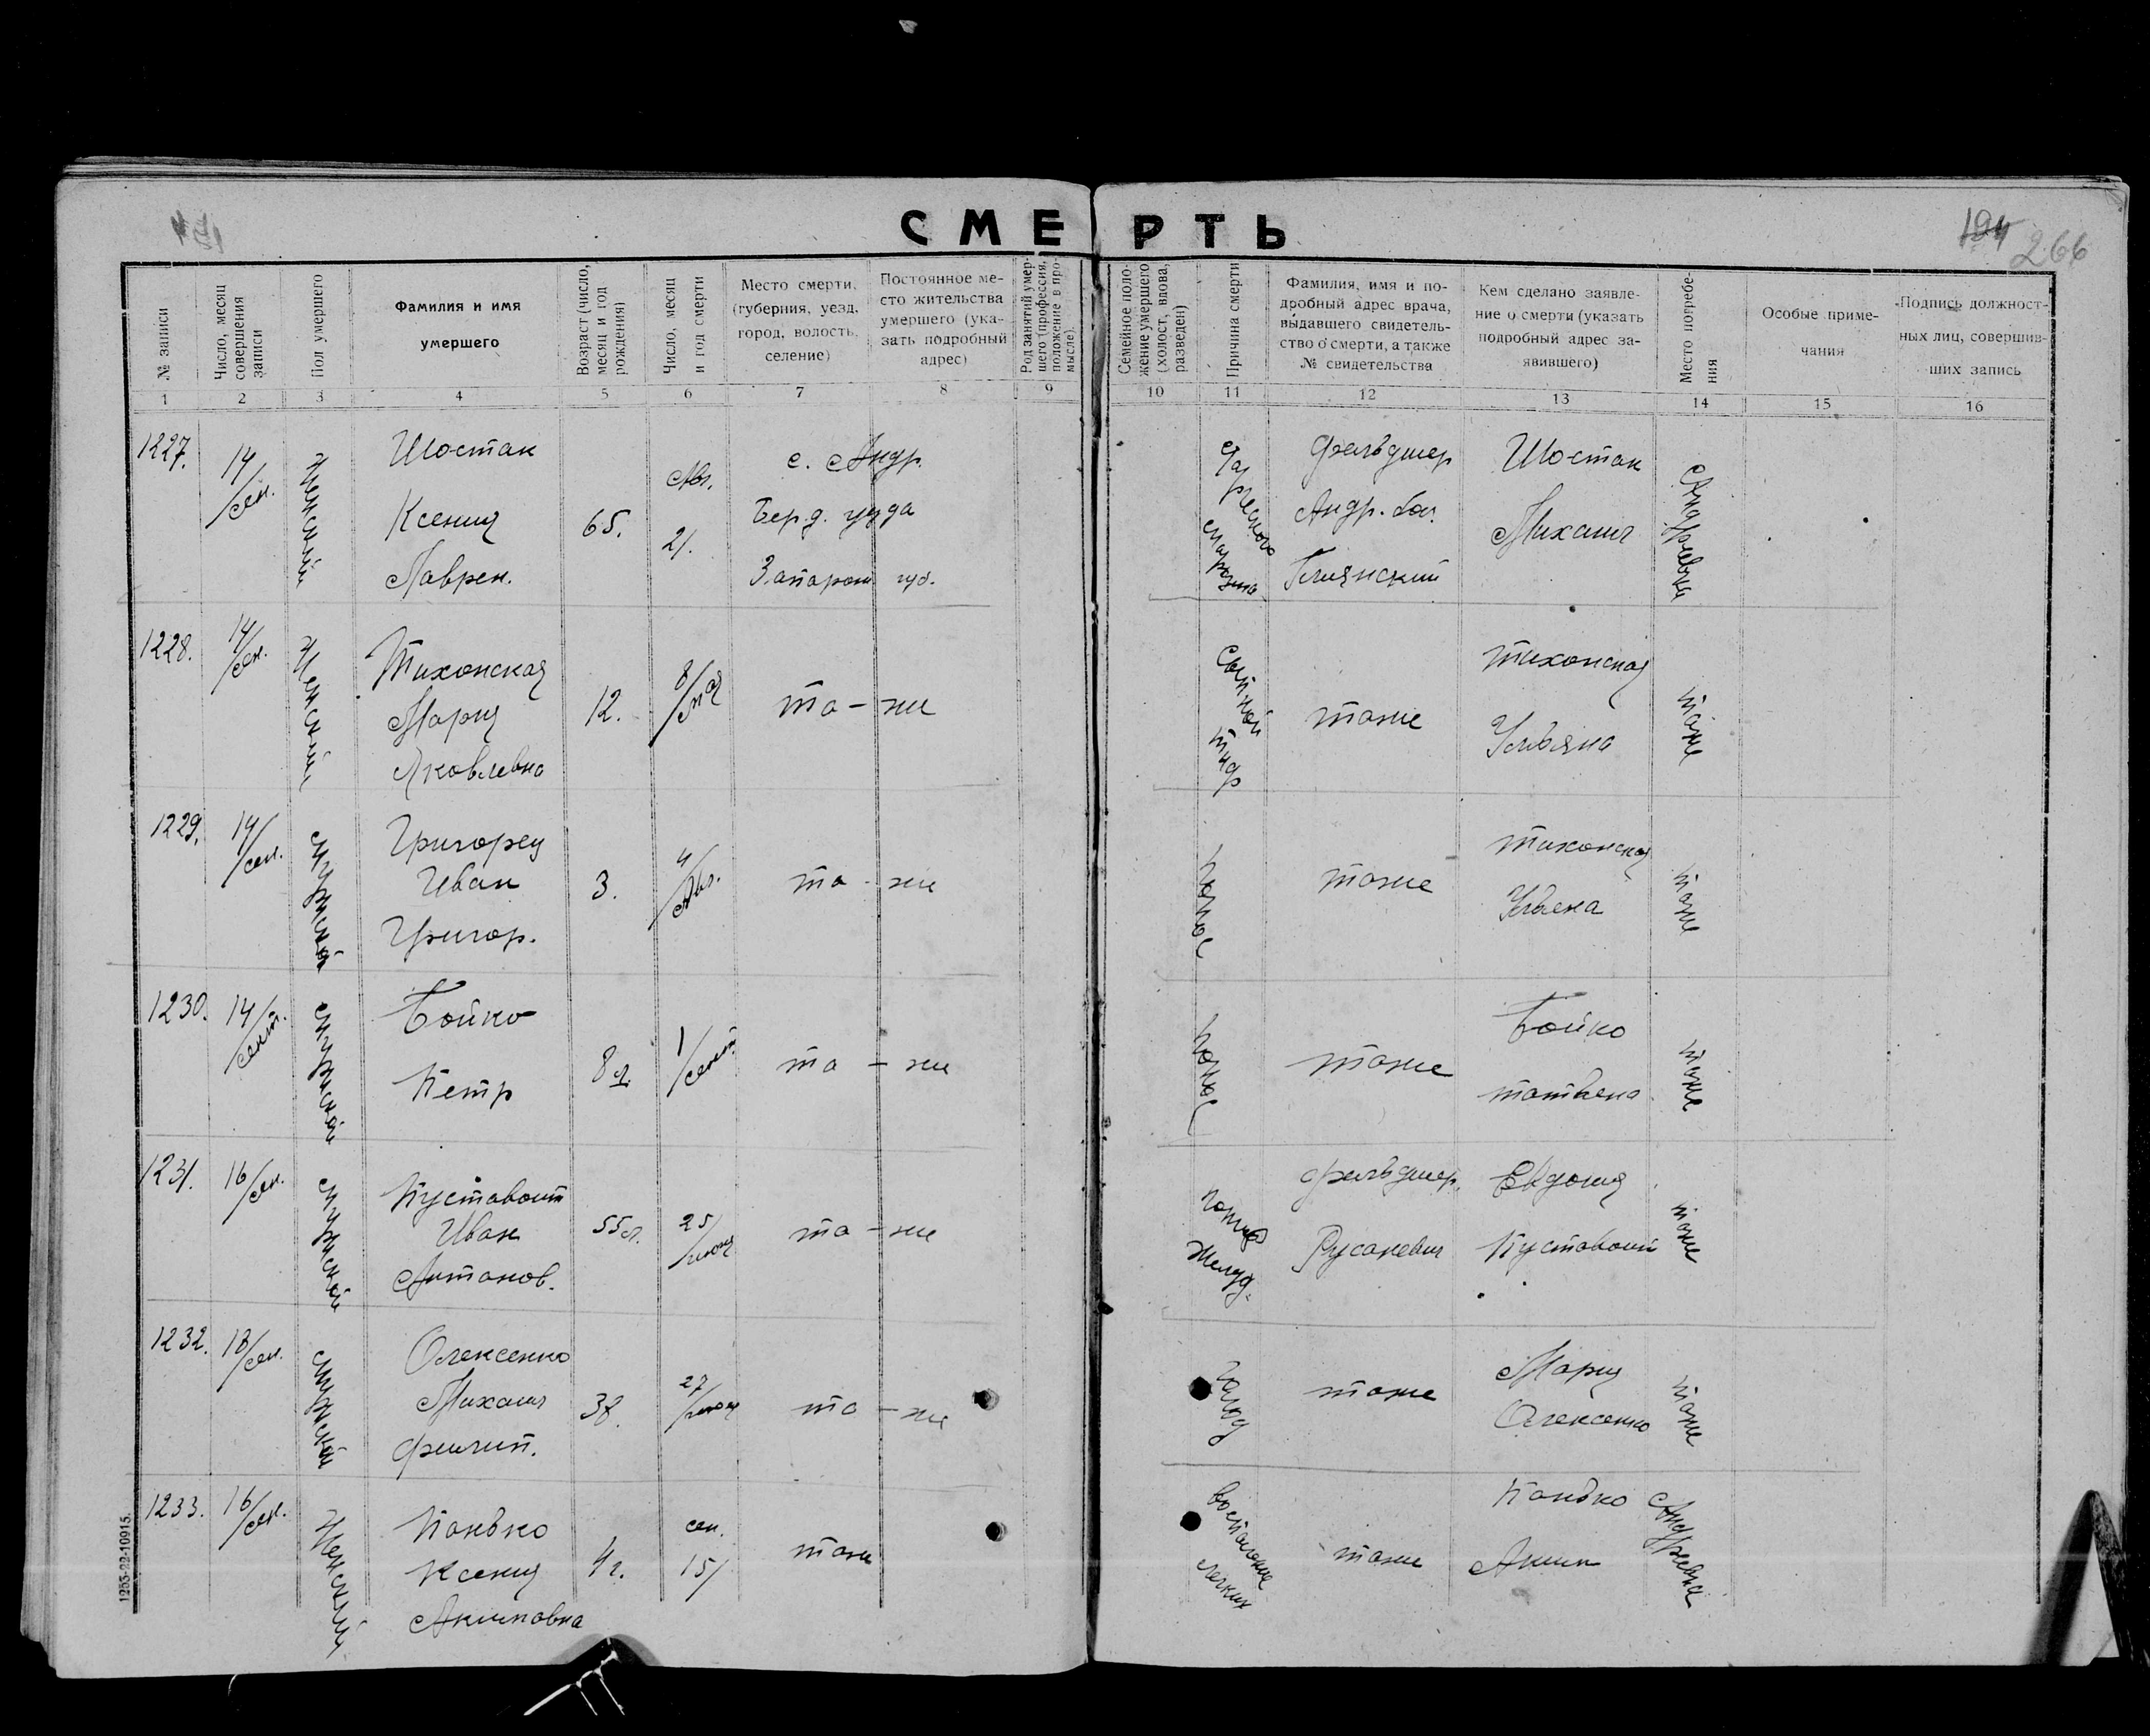 СМЕРТЬ
194 266
№ записи
Число, месяц совершения записи
Пол умершего
Фамилия и имя
умершего
Возраст (число, месяц и год рождения)
Число, месяц и год смерти
Место смерти, (губерния, уезд, город, волость, селение)
Постоянное место жительства умершего (указать подробный адрес)
Род занятий умершего (профессия, положение в промысле).
Семейное положение умершего (холост, вдова, разведен)
Причина смерти
Фамилия, имя и подробный адрес врача, выдавшего свидетельство о смерти, а также № свидетельства
Кем сделано заявление о смерти (указать подробный адрес заявившего)
Место погребения
Особые примечания
Подпись должностных лиц, совершивших запись
1 2 3 4 5 6 7 8 9 10 11 12 13 14 15 16
1227. 14/сен. Женский
Шостак
Ксения
Лаврен.
65.
Авг.
21.
с. Андр.
Берд. уезда
Запорож губ.
старческого
фельдшер
Андр. бол.
Шостак
Михаил
Андреевка
1228. 14/сен. Женский
Тихонская
Мария
Яковлевна
12. 8/мая та-же
Сыпной тиф
тоже
Тихонская
Ульяна
тоже
1229. 14/сен. Мужской
Григорец
Иван
Григор.
3. 4/Авг. та-же
понос
тоже
Тихонская
Ульяна
тоже
1230. 14/сент. Мужской
Бойко
Петр
8 л. 1/сент. та-же
понос
тоже
Бойко
татьяна
тоже
1231. 16/сен. Мужской
Пустовоит
Иван
Антонов.
55 л. 25/июня та-же
желуд.
фельдшер.
Русаневич
Евдокия
Пустовоит
тоже
1232. 18/сен. Мужской
Олексенко
Михаил
Филип.
38. 27/июня та-же
голод
тоже
Мария
Олексенко
тоже
1233. 16/сен. Женский
Панько
Ксения
Акимовна
4 г.
сен.
15/
тоже
воспаление легких
тоже
Панько
Аким
Андреевка
1253-22-10915.